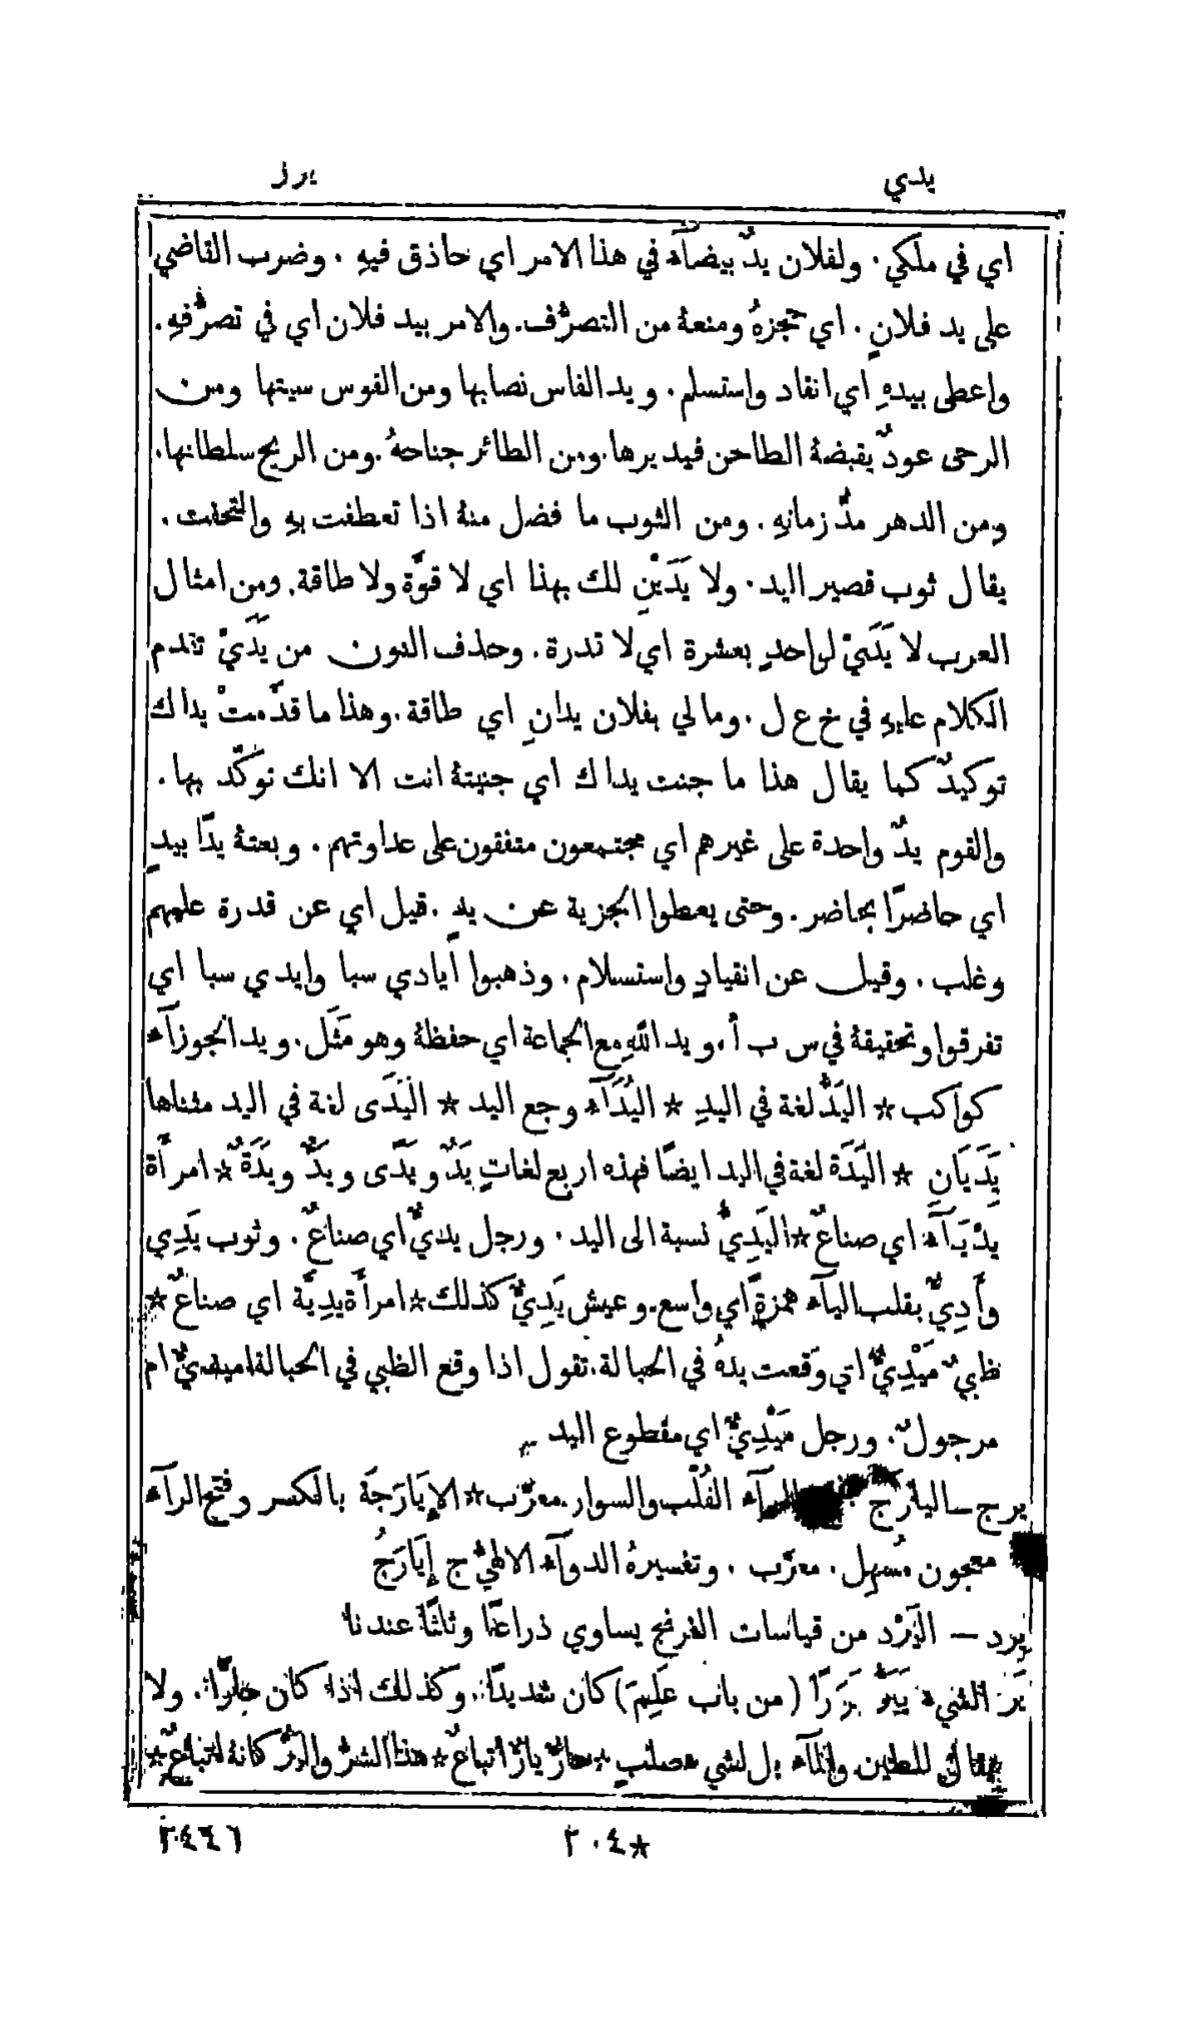 يدي يرر
اي في ملكي. ولفلان يدٌ بيضآء في هذا الامر اي حاذق فيهِ. وضرب القاضي
على يد فلانٍ. اي حجزهُ ومنعهُ من التصرُّف. والامر بيد فلان اي في تصرُّفهِ.
واعطى بيدهِ اي انقاد واستسلم. ويد الفاس نصابها ومن القوس سيتها ومن
الرحى عودٌ يقبضهُ الطاحن فيديرها. ومن الطائر جناحهُ. ومن الريح سلطانها.
ومن الدهر مدُّ زمانهِ. ومن الثوب ما فضل منهُ اذا تعطفت بهِ والتحفت.
يقال ثوب قصير اليد. ولا يَدَيْنِ لك بهذا اي لا قوَّة ولا طاقة. ومن امثال
العرب لا يَدَيْ لواحدٍ بعشرة اي لا قدرة. وحذف النون من يَدَيْ تقدم
الكلام عليهِ في خ ع ل. وما لي بفلان يدانِ اي طاقة. وهذا ما قدَّمتْ يداك
توكيدٌ كما يقال هذا ما جنت يداك اي جنيتهُ انت الا انك توكّد بها.
والقوم يدٌ واحدة على غيرهم اي مجتمعون متفقون على عداوتهم. وبعتهُ يدًا بيدٍ
اي حاضرًا بحاضر. وحتى يعطوا الجزية عن يدٍ. قيل اي عن قدرة عليهم
وغلب. وقيل عن انقيادٍ واستسلام. وذهبوا أيادي سبا وايدي سبا اي
تفرقوا وتحقيقهُ في س ب أ. ويد اللّٰهِ مع الجماعة اي حفظهُ وهو مَثَل. ويد الجوزآء
كواكب * اليَدُّ لغة في اليدِ * اليُدَآء وجع اليد * اليَدَى لغة في اليد مثناها
يَدَيَانِ * اليَدَة لغة في اليد ايضًا فهذه اربع لغاتٍ يَدٌ ويَدًى ويَدٌّ ويَدَةٌ * امرأَة
يدْيَآء اي صناعٌ * اليَدِيُّ نسبة الى اليد. ورجل يديٌّ اي صناعٌ. وثوب يَدِي
وأَدِيٌّ بقلب اليآء همزةً اي واسع. وعيش يَدِيٌّ كذلك * امرأَة يدِيَّة اي صناعٌ *
ظبيٌ مَيْدِيٌّ اي وقعت يدهُ في الحبالة. تقول اذا وقع الظبي في الحبالة اميديٌّ ام
مرجولٌ. ورجل مَيْدِيٌّ اي مقطوع اليد
يرج – اليارَج الرآء القُلْب والسوار. معرَّب * الإِيَارَجَة بالكسر وفتح الرآء
معجون مُسهِل. معرَّب. وتفسيرهُ الدوآء الالهيُّ ج إِيَارَجُ
يرد – اليَرْد من قياسات الفرنج يساوي ذراعًا وثلثًا عندنا
يَرَّ الشيء يَيَرُّ يَرَرًا (من باب عَلِمَ) كان شديدًا. وكذلك اذا كان حارًّا. ولا
يقال للطين والمآء بل لشيء صلب * حارٌّ يارٌّ اتباعٌ * هذا الشرُّ واليرُّ كانهُ اتباعٌ *
٢٠٤*
٢٤٤٦